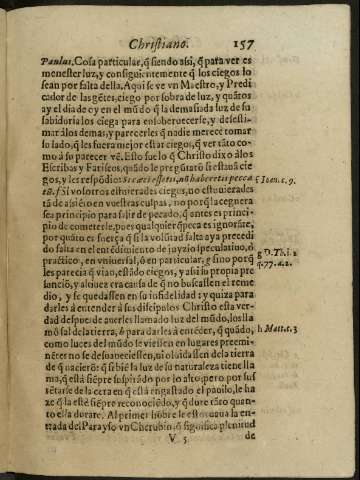 Christiano. 157
Paulus. Cosa particular, q̃ siendo assi, q̃ para ver es
menester luz, y consiguientemente q̃ los ciegos lo
sean por falta della. Aqui se ve vn Maestro, y Predi
cador de las gẽtes, ciego por sobra de luz, y quãtos
ay el dia de oy en el mũdo q̃ la demasiada luz de su
sabiduria los ciega para ensoberuecerse, y desesti-
mar à los demas, y parecerles q̃ nadie merece tomar
su lado, q̃ les fuera mejor estar ciegos, q̃ ver tãto co-
mo à su parecer vẽ. Esto fue lo q̃ Christo dixo à los
Escribas y Fariseos, quãdo le pregũtarõ si estauã cie
gos, y les respõdio: Si cæci essetis, nõ haberetis pecca
tũ. f Si vosotros estuvierades ciegos, no estuuierades
tã de assiẽto en vuestras culpas, no porq̃ la ceguera
sea principio para salir de pecado, q̃ antes es princi-
pio de cometerle, pues qualquier q̃ peca es ignorãte,
por quãto es fuerça q̃ si la volũtad falta aya precedi
do falta en el entẽdimiento de juyzio speculatiuo, ò
practico, en vniuersal, ò en particular, g sino porq̃
les parecia q̃ vian, estãdo ciegos, y assi su propia pre
sancio, y altiuez era causa de q̃ no buscassen el reme
dio, y se quedassen en su infidelidad: y quiza para
darles à entender à sus discipulos Christo esta ver-
dad despues de auerles llamado luz del mũdo, los lla
mò sal de la tierra, h para darles à entẽder, q̃ quãdo,
como luces del mũdo se viessen en lugares preemi-
nẽtes no se desuaneciessen, ni oluidassen de la tierra
de q̃ naciero: q̃ si biẽ la luz de su naturaleza tiene lla
ma, q̃ està siẽpre suspirãdo por lo alto; pero por sus
tẽtarse de la cera en q̃ està engastado el pauilo, le ha
ze q̃ la estè siẽpre reconociẽdo, y q̃ dure tãto quan-
to ella durare. Al primer hõbre le estoruaua la en-
trada del Parayso vn Cherubin, q̃ significa plenitud
V 5 de
f Ioan. c. 9.
g D. Th. 1. 2
q. 77. a. 2.
h Matt. c. 5